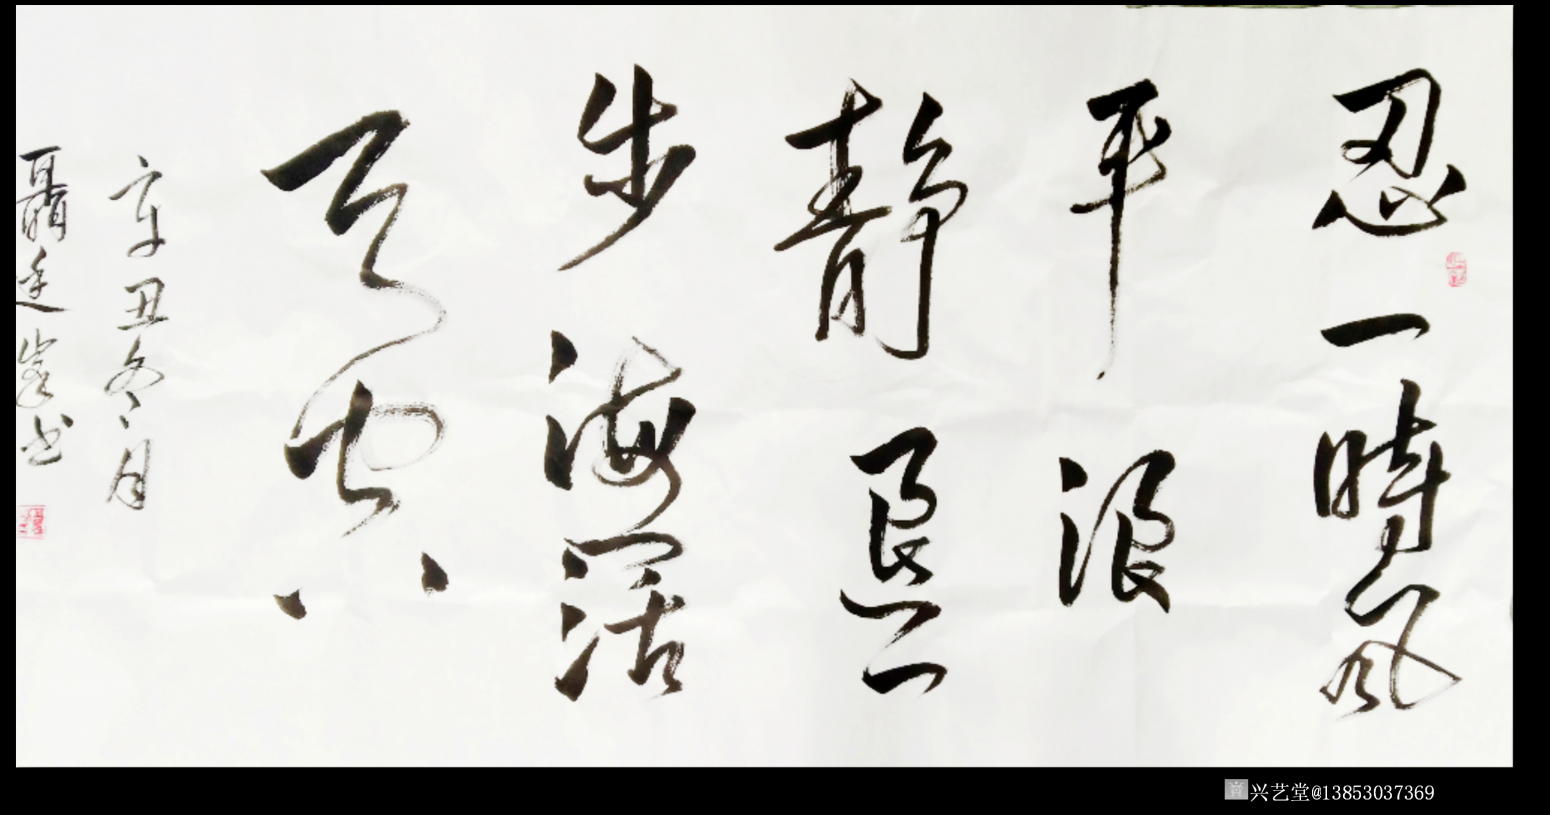 忍一時风
平浪
静退一
步海阔
天空
辛丑冬月
聶廷峯书
兴艺堂@13853037369